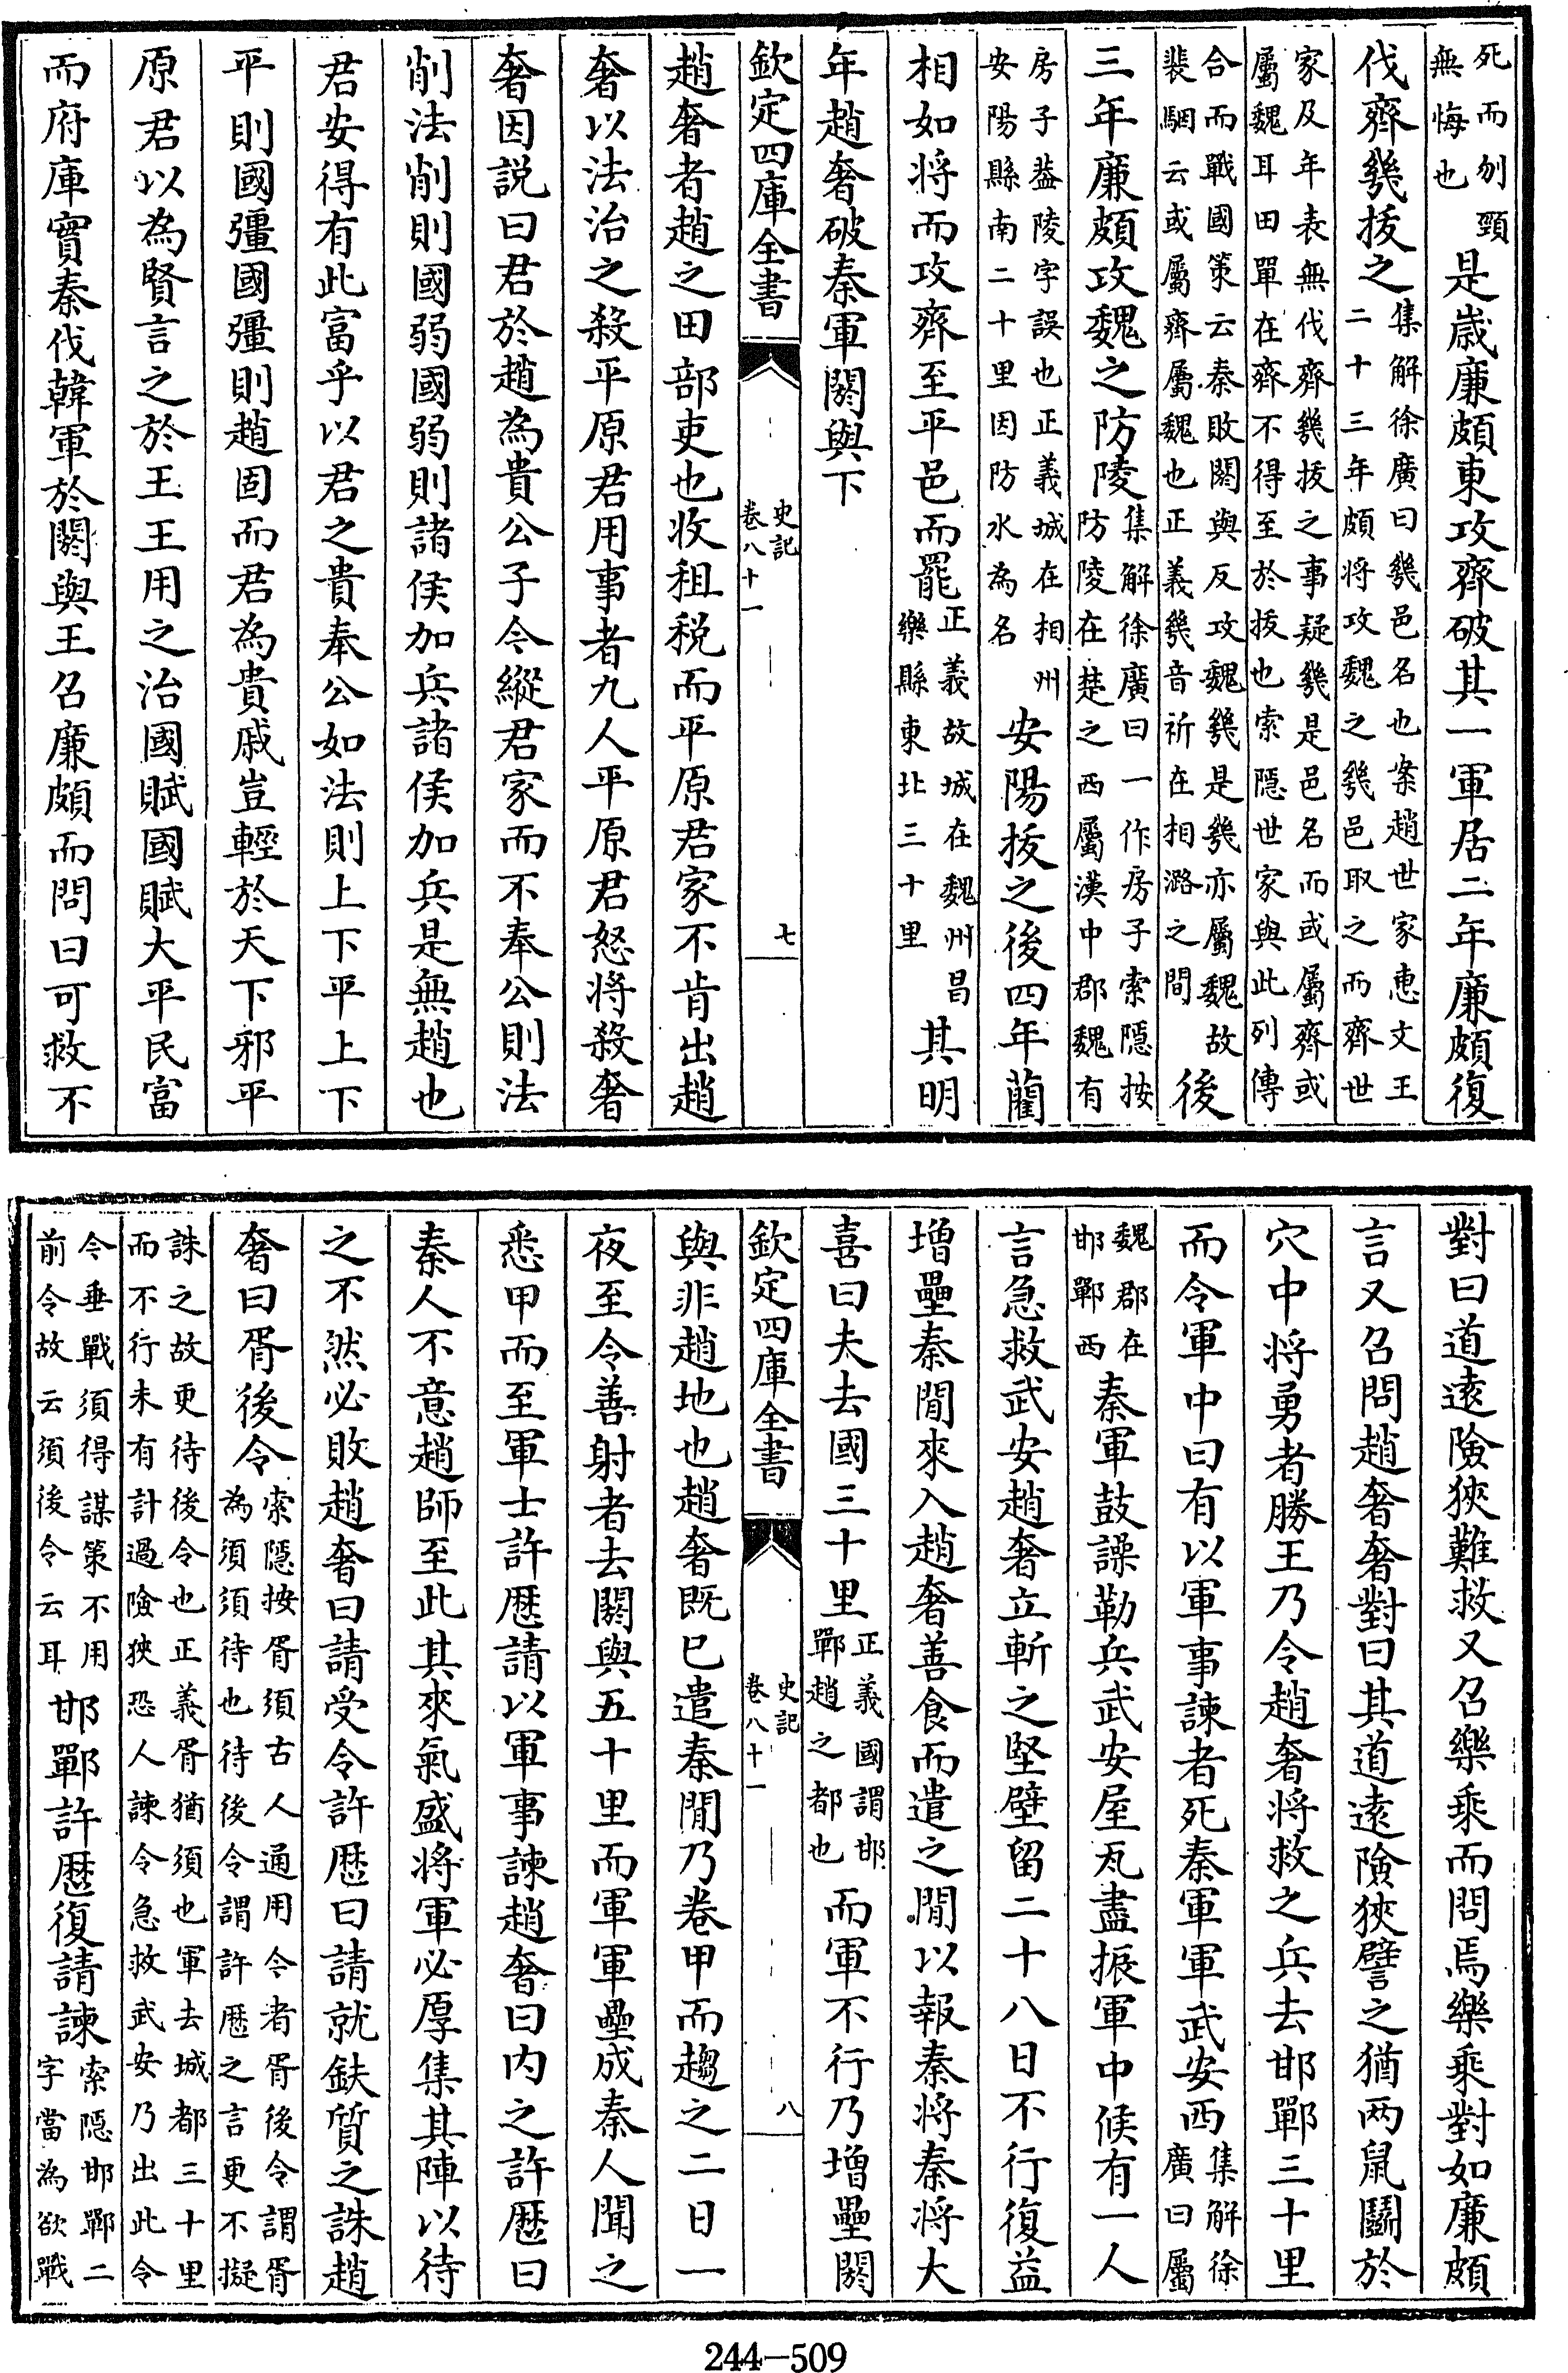 死而刎頸無悔也是歳廉頗東攻齊破其一軍居二年廉頗復
伐齊幾拔之集解徐廣曰幾邑名也案趙世家惠文王二十三年頗将攻魏之幾邑取之而齊世
家及年表無伐齊幾拔之事疑幾是邑名而或屬齊或屬魏耳田單在齊不得至於拔也索隱世家與此列傳
合而戰國策云秦敗閼與反攻魏幾幾亦屬魏故裴駰云或屬齊屬魏也正義幾音祈在相潞之間後
三年廉頗攻魏之防陵集解徐廣曰一作房子索隱按防陵在楚之西屬漢中郡魏有
房子葢陵字誤也正義城在相州安陽縣南二十里因防水為名安陽拔之後四年藺
相如将而攻齊至平邑而罷正義故城在魏州昌樂縣東北三十里其明
年趙奢破秦軍閼與下
欽定四庫全書
史記
卷八十一
七
趙奢者趙之田部吏也收租税而平原君家不肯出趙
奢以法治之殺平原君用事者九人平原君怒將殺奢
奢因説曰君於趙為貴公子今縱君家而不奉公則法
削法削則國弱國弱則諸侯加兵諸侯加兵是無趙也
君安得有此富乎以君之貴奉公如法則上下平上下
平則國彊國彊則趙固而君為貴戚豈輕於天下邪平
原君以為賢言之於王王用之治國賦國賦大平民富
而府庫實秦伐韓軍於閼與王召廉頗而問曰可救不
對曰道逺險狹難救又召樂乘而問焉樂乘對如廉頗
言又召問趙奢奢對曰其道逺險狹譬之猶两鼠鬭於
穴中将勇者勝王乃令趙奢将救之兵去邯鄲三十里
而令軍中曰有以軍事諫者死秦軍軍武安西集解徐廣曰屬
魏郡在邯鄲西秦軍鼓譟勒兵武安屋瓦盡振軍中候有一人
言急救武安趙奢立斬之堅壁留二十八日不行復益
增壘秦間來入趙奢善食而遣之間以報秦将秦将大
喜曰夫去國三十里正義國謂邯鄲趙之都也而軍不行乃增壘閼
欽定四庫全書
史記
卷八十一
八
與非趙地也趙奢既已遣秦間乃卷甲而趨之二日一
夜至令善射者去閼與五十里而軍軍壘成秦人聞之
悉甲而至軍士許歴請以軍事諫趙奢曰内之許歴曰
秦人不意趙師至此其來氣盛将軍必厚集其陣以待
之不然必敗趙奢曰請受令許歴曰請就鈇質之誅趙
奢曰胥後令索隱按胥須古人通用今者胥後令謂胥為須須待也待後令謂許歴之言更不擬
誅之故更待後令也正義胥猶須也軍去城都三十里而不行未有計過險狹恐人諫令急救武安乃出此令
今垂戰須得謀策不用前令故云須後令云耳邯鄲許歴復請諫索隱邯鄲二字當為欲戰
244-509